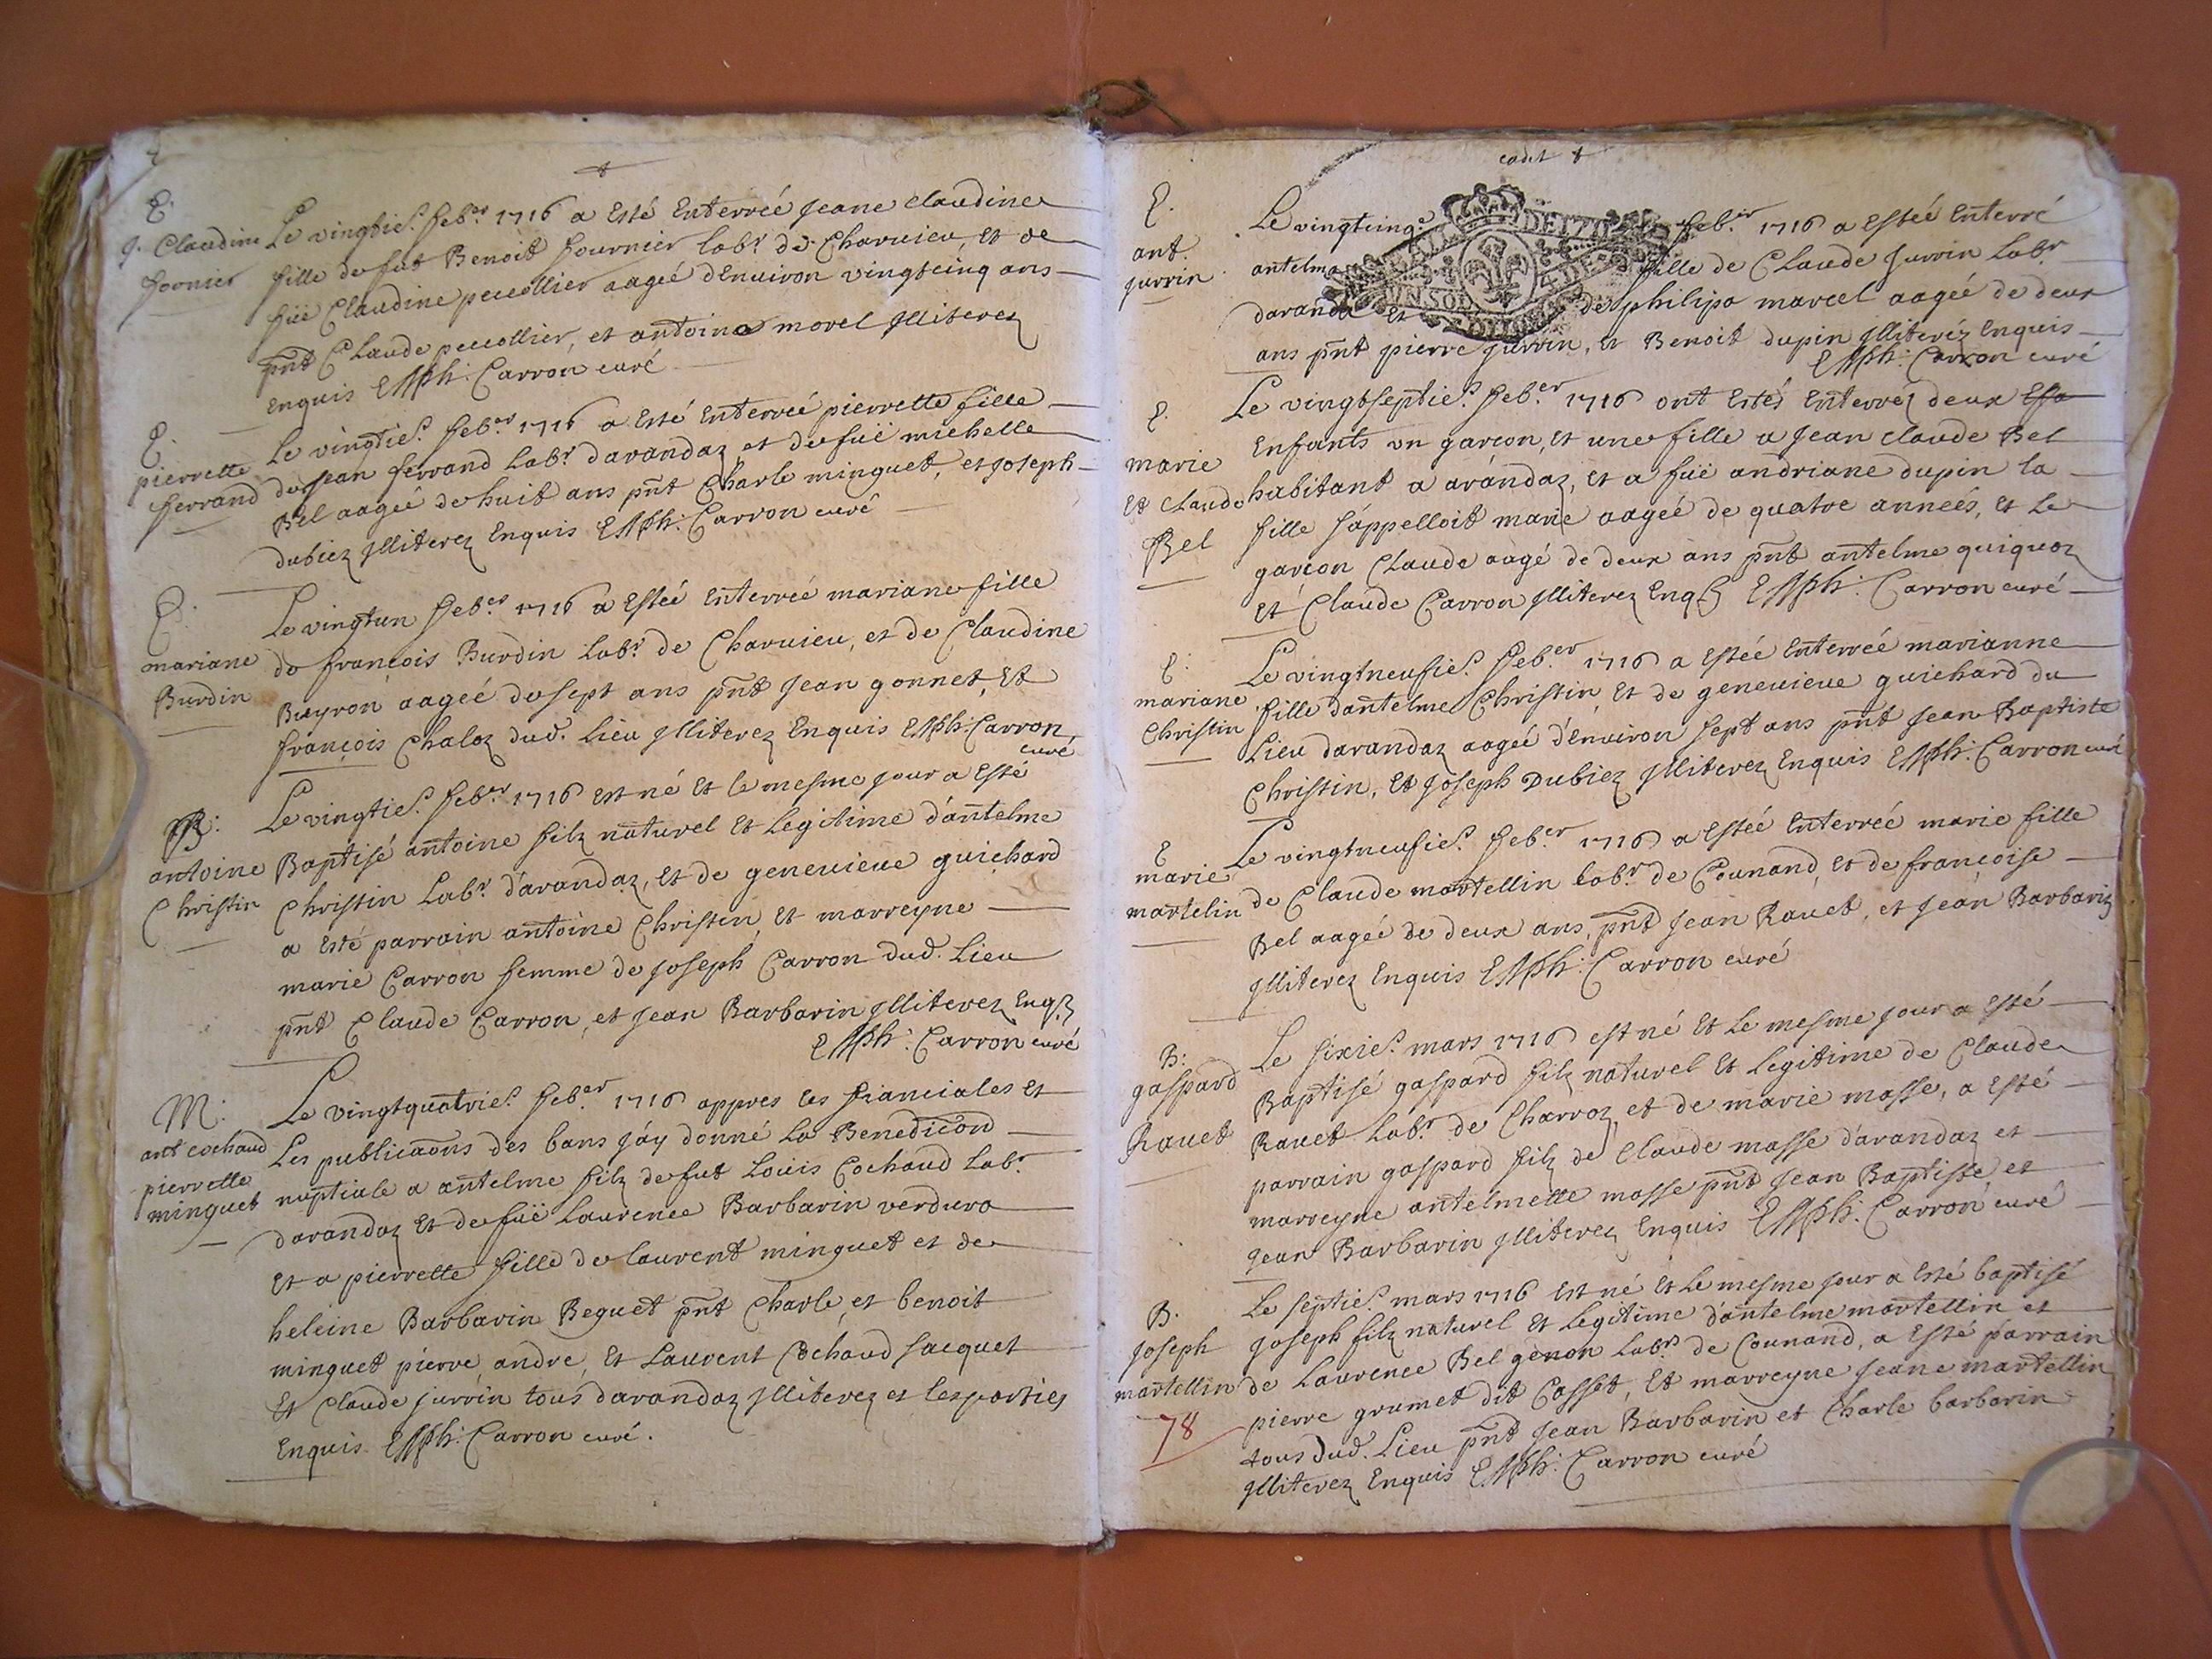 E.
J. Claudine
fornier
Le vingtie.e feb.er 1716 a Esté Enterreé Jeane claudine
fille de fut Benoit fournier lab.r de Charuieu, et de
füe Claudine peccollier aageé dEnuiron vingtcinq ans
pnt Claude peccollier, et antoine morel Jlliterez
enquis Carron curé
E.
pierrette
ferrand
Le vingtie.e feb.er 1716 a Esté Enterreé pierrette fille
de Jean ferrand Lab.r darandaz et de füe michelle
Bel aageé de huit ans pnt Charle minguet, et Joseph
dubiez Jlliterez Enquis Carron curé
E.
mariane
Burdin
Le vingtun feb.er 1716 a Esteé Enterreé mariane fille
de francois Burdin Lab.r de Charuieu, et de Claudine
Buyron aageé de sept ans pnt Jean gonnet, Et
françois Chaloz dud. Lieu Jlliterez Enquis Carron
curé
B:
antoine
Christin
Le vingtie.e feb.er 1716 est né Et le mesme Jour a Esté
Baptisé antoine filz naturel Et Legitime d'antelme
Christin Lab.r d'arandaz, Et de geneuieue guichard
a Esté parrain antoine Christin, Et marreyne
marie Carron femme de Joseph Carron dud. Lieu
pnt Claude Carron, et Jean Barbarin Jlliterez Enq.s
Carron curé
M:
ant cochaud
pierrette
minguet
Le vingtquatrie.e feb.er 1716 appres les fianciales Et
Les publicaõns des bans Jáy donné La Benedicõn
nuptiale a antelme filz de fut Loüis Cochaud Lab.r
darandaz Et de füe Laurence Barbarin verdura
Et a pierrette fille de laurent minguet et de
heleine Barbarin Beguet pnt Charle, et benoit
minguet pierre andre, Et Laurent Cochaud Jacquet
Et Claude Jurrin tous darandaz Jlliterez et les parties
Enquis Carron curé.
cadet
E.
ant.
jurrin
Le vingtcinq.e feb.er 1716 a Esteé Enterré
antelme fille de Claude Jurrin Lab.r
darandaz Et de philipa marcel aageé de deux
ans pnt pierre Jurrin, Et Benoit dupin Jlliteréz Enquis
Carron curé
E.
marie
et claude
Bel
Le vingtseptie.e feb.er 1716 ont Estés Enterréz deux
Enfants vn garçon, Et une fille a Jean claude Bel
habitant a arandaz, Et a füe andriane dupin la
fille sáppelloit marie aageé de quatre anneés, Et Le
garcon Claude aagé de deux ans pnt antelme quiquoz
Et Claude Carron Jlliterez Enq.s Carron curé
E:
mariane
Christin
Le vingtneufie.e feb.er 1716 a Esteé Enterreé marianne
fille dantelme Christin, Et de geneuieue guichard du
Lieu darandaz aageé d'Enuiron sept ans pnt Jean Baptiste
Christin, Et Joseph Dubiez Jlliterez Enquis Carron curé
E
marie
martelin
Le vingtneufie.e feb.er 1716 a Esteé Enterreé marie fille
de Claude martellin lab.r de Counand, Et de françoise
Bel aageé de deux ans, pnt Jean Rauet, et Jean Barbarin
Jlliterez Enquis Carron curé
B:
gaspard
Rauet
Le sixie.e mars 1716 est né Et Le mesme Jour a Esté
Baptisé gaspard filz naturel Et Legitime de Claude
Rauet Lab.r de Charroz, et de marie masse, a Esté
parrain gaspard filz de Claude masse d'arandaz et
marreyne antelmette masse pnt Jean Baptiste et
Jean Barbarin Jlliterez Enquis Carron curé
B.
Joseph
martellin
78
Le septie.e mars 1716 est né Et Le mesme Jour a Esté baptisé
Joseph filz naturel Et Legitime d'antelme martellin et
de Laurence Bel genon Lab.r de Counand, a Esté parrain
pierre grumet dit Casset, Et marreyne Jeane martellin
tous dud. Lieu pnt Jean Barbarin et Charle barbarin
Jlliterez Enquis Carron curé